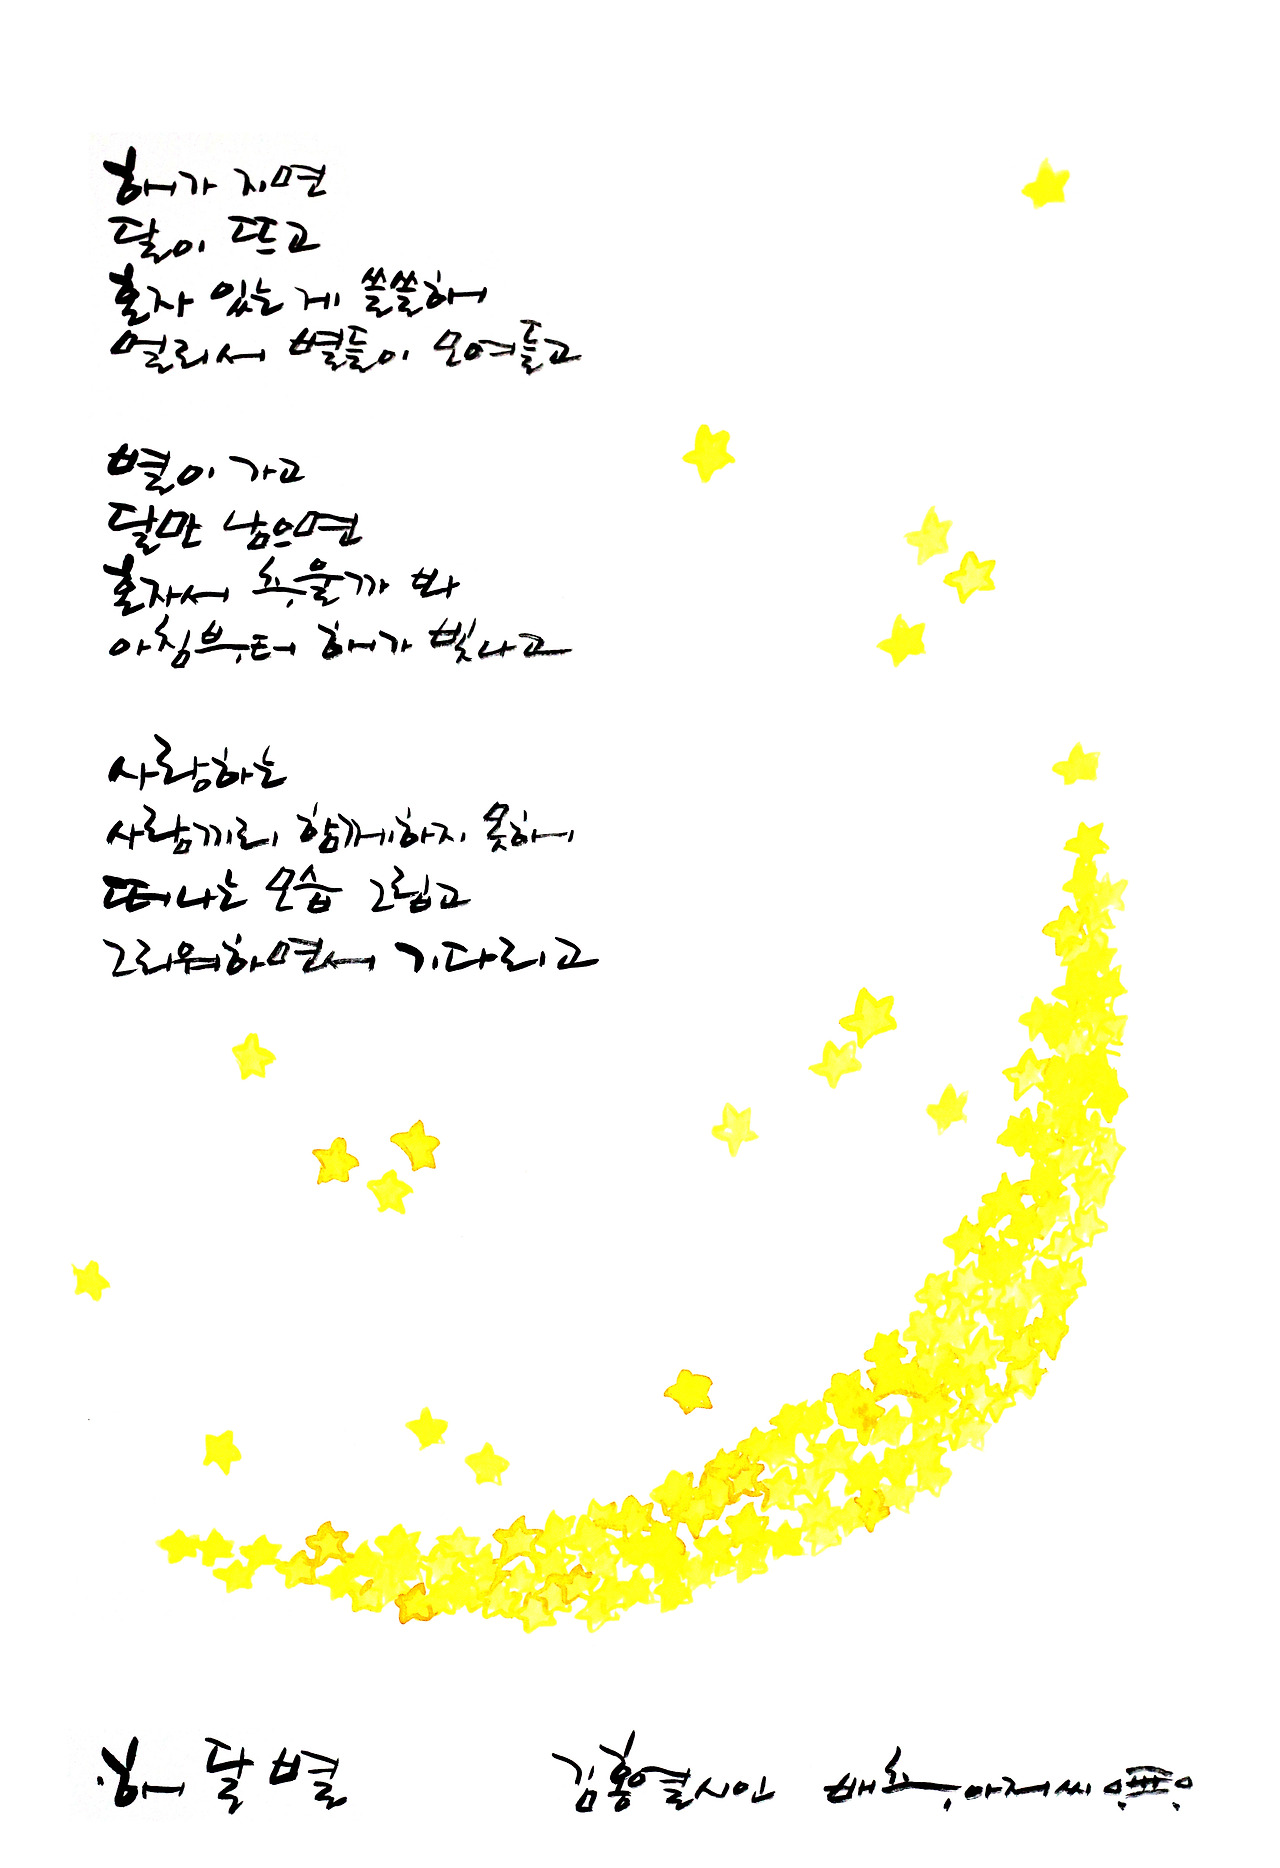 해가 지면
달이 뜨고
혼자 있는 게 쓸쓸해
멀리서 별들이 모여들고
별이 가고
달만 남으면
혼자서 추울까 봐
아침부터 해가 빛나고
사랑하는
사람끼리 함께하지 못해
떠나는 모습 그립고
그리워하면서 기다리고
해 달 별
김홍열시인 배추아저씨